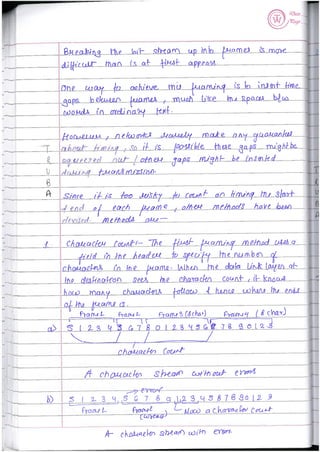 Breaking the bit stream up into frames is more
difficult than is at first appears.
One way to achieve this framing is to insert time
gaps between frames, much like the spaces b/w
words in ordinary text.
However, networks rarely make any guarantees
about timing, so it is possible that gaps might be
squeezed out / other gaps might be inserted
during transmission.
Since it is too risky to count on timing the start
& end of each frame, other methods have been
devised. methods are—
1. Character count:- The first framing method uses a
field in the header to specify the number of
characters in the frame. When the data link layer at
the destination sees the character count, it knows
how many characters follow & hence where the ends
of the frame is.
Frame1 Frame2 Frame3 (8 char) Frame4 (8 char)
a) 5 1 2 3 4 5 6 7 8 8 0 1 2 3 4 5 6 8 7 8 9 0 1 2 3
character count
A character stream without errors
error
b) 5 1 2 3 4 7 6 7 8 8 0 1 2 3 4 5 6 8 7 8 9 0 1 2 3
Frame1 Frame2 (wrong) Now a character count
A character stream with errors
T
R
U
B
A